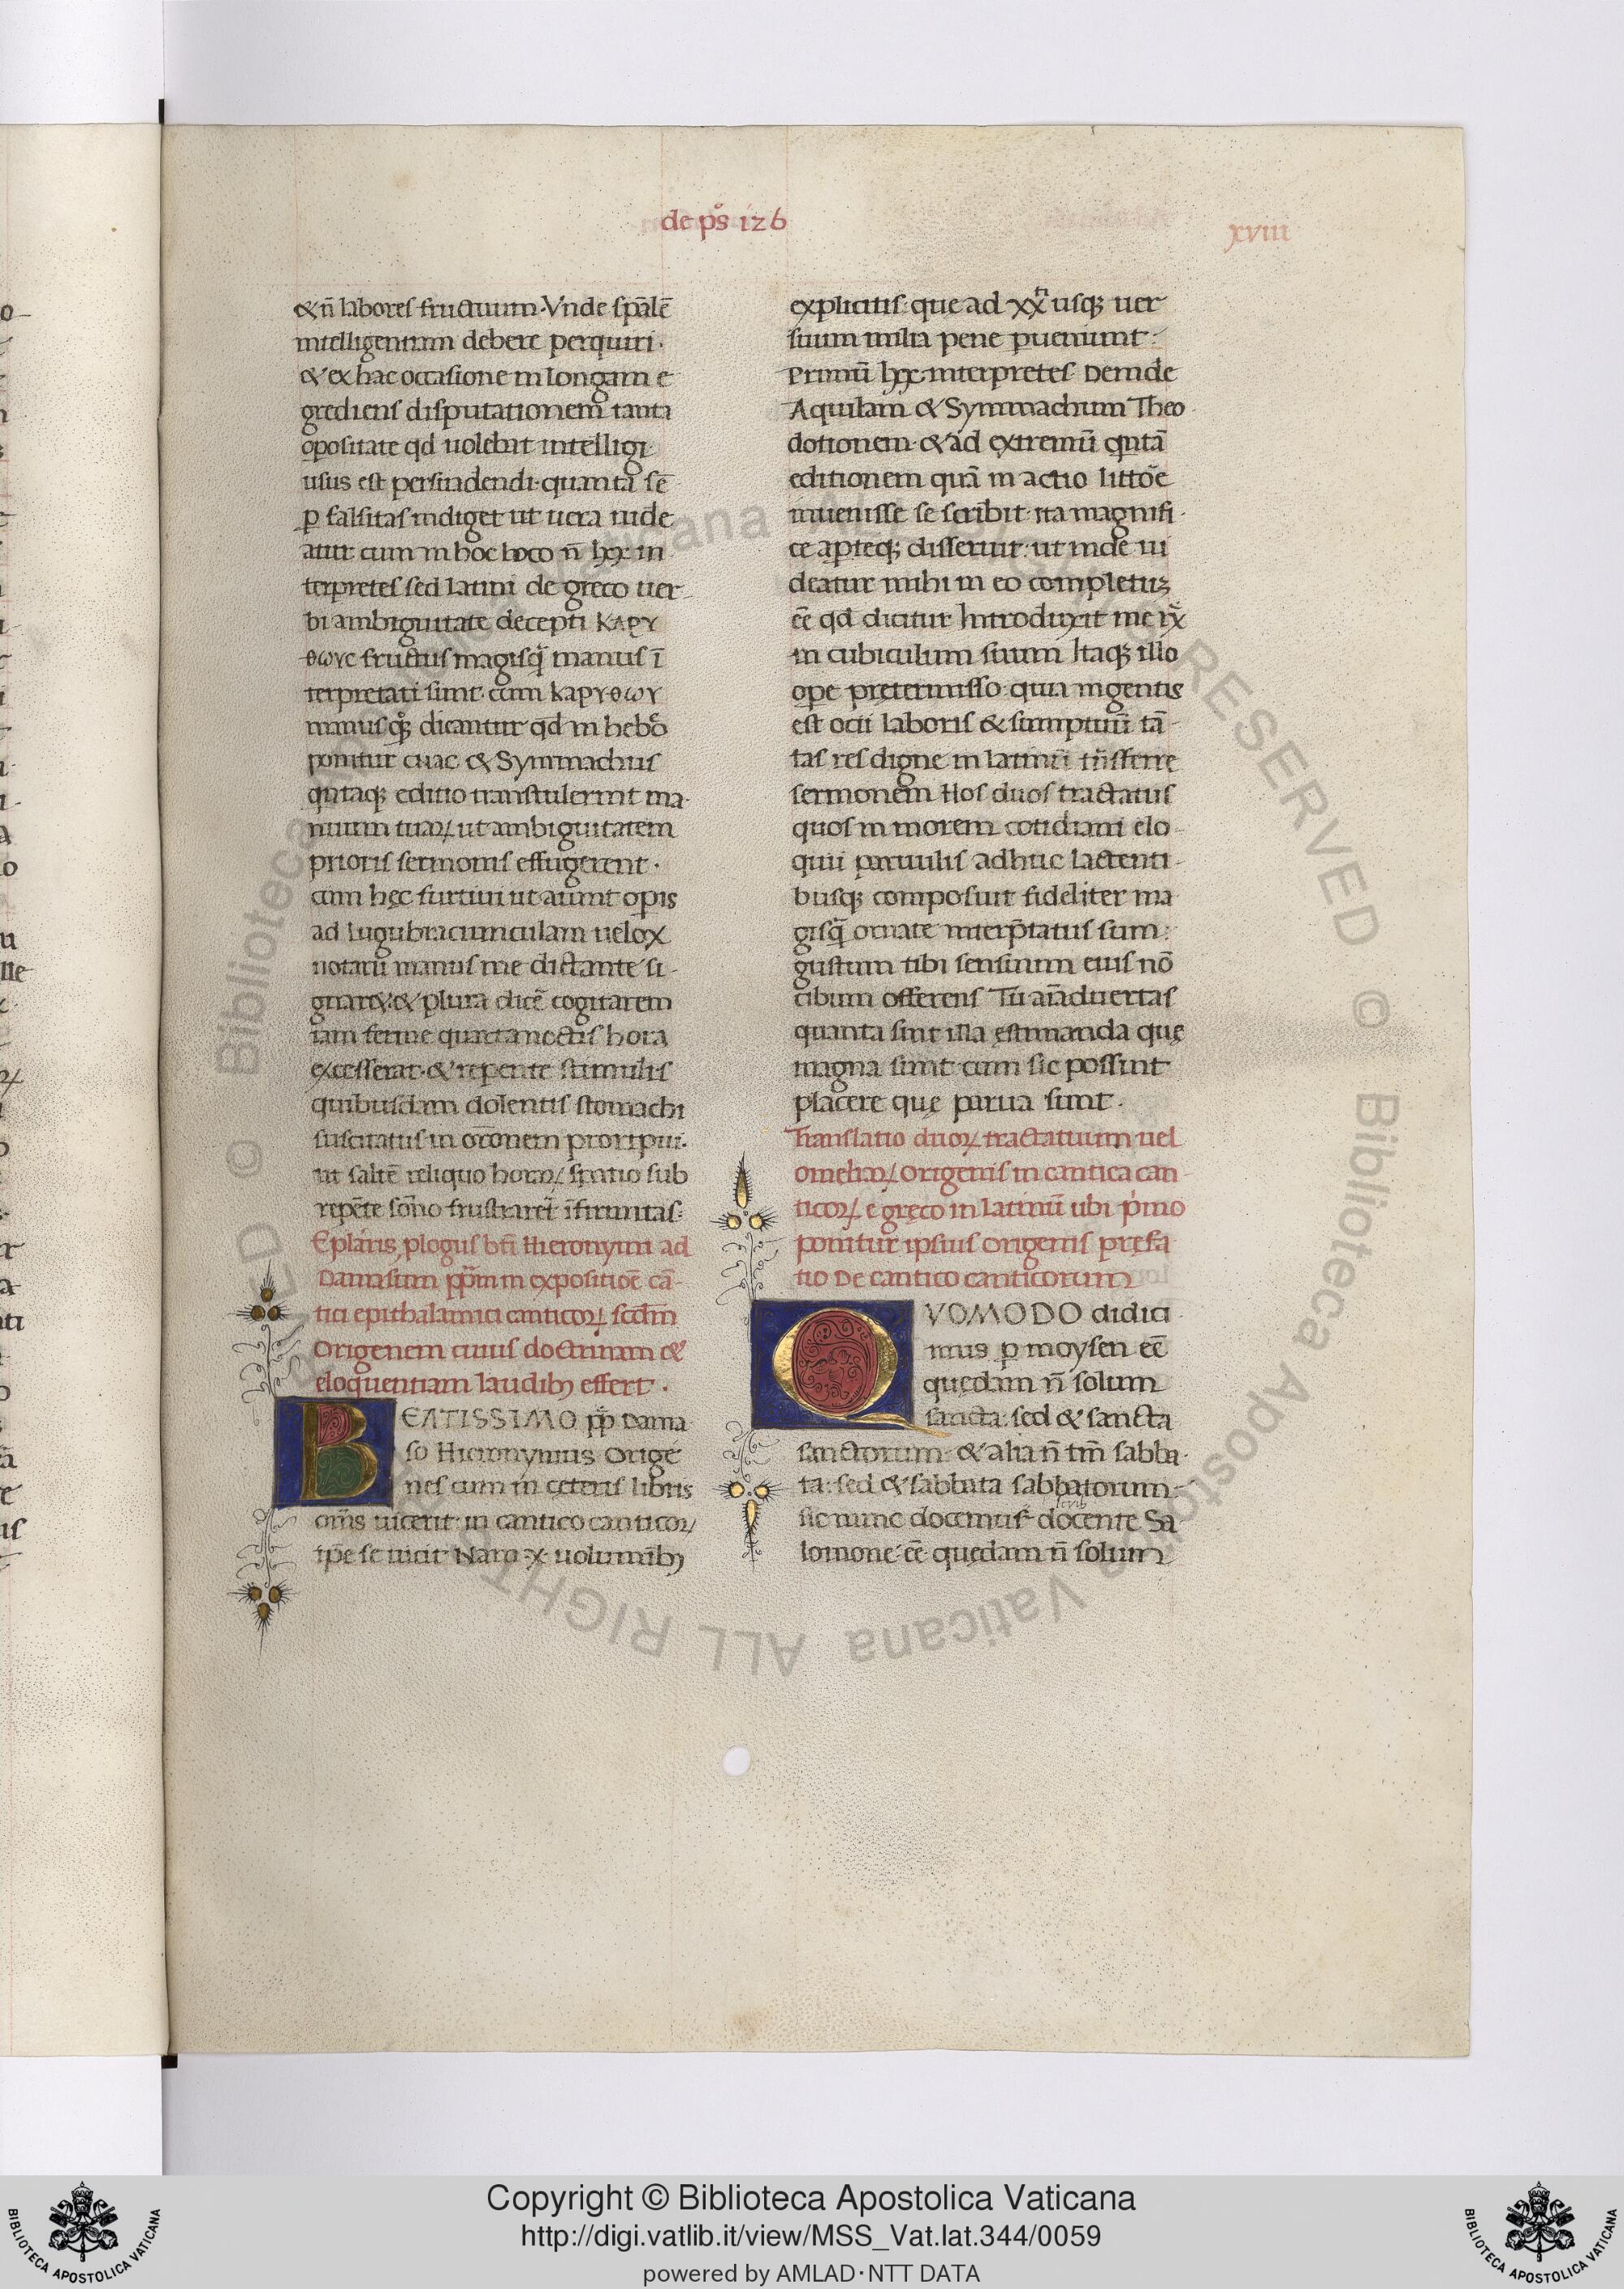 de ps̊ 126
xviii
& n̄ labores fructuum. Vnde sp̄alē
intelligentiam debere perquiri.
& ex hac occasione in longam e
grediens disputationem tanta
oꝑositate qd uolebat intelligi
usus est persuadendi. quanta sē
ꝑ falsitas indiget ut uera uide
atur. cum in hoc loco n̄ lxx in
terpretes sed latini de greco uer-
bi ambiguitate decepti ΚΑΡΥ
θωγc fructus magisq̄ manus ī
terpretati sunt. cum ΚΑΡΥ·θωΥ
manus q̊ꝫ dicantur qd in hebͦo
ponitur cuac & Symmachus
qͥntaqꝫ editio transtulerunt ma-
nuum tuaꝝ ut ambiguitatem
prioris sermonis effugerent.
cum hęc furtiui ut aiunt oꝑis
ad lugubraciunculam uelox
notarū manus me dictante si-
gnaret & plura dicē cogitarem
iam ferme quarta noctis hora
excesserat. & repente stimulis
quibusdam dolentis stomachi
suscitatus in or̄onem proripui.
ut saltē reliquo horaꝝ spatio sub
repēte sōno frustraret̄ ifirmitas.
Eplaris, plogus btī Hieronymi ad
Damasum pp̄m in expositiōe cā-
tici epithalamici canticoꝝ scd̄m
Origenem cuius doctrinam &
eloquentiam laudibꝫ effert.
BEATISSIMO pp̄ Dama
so Hieronymus Orige
nes cum in ceteris libris
om̄s uicerit. in cantico canticoꝝ
ip̄e se uicit Nam x uoluminibꝫ
explicitis. que ad xx usqꝫ uer
suum milia pene ꝑueniunt.
Primū lxx interpretes Deinde
Aquilam & Symmachum Theo
dotionem & ad extremū qͥntā
editionem quā in actio littoͤe
inuenisse se scribit. ita magnifi-
ce aperteqꝫ disseruit. ut inde ui
deatur mihi in eo completuꝫ
ēē qd dicitur Introduxit me rx̄
in cubiculum suum Itaqꝫ illo
oꝑe pretermisso. quia ingentis
est ocii laboris & sumptuū tā-
tas res digne in latinū tn̄sferre
sermonem Hos duos tractatus
quos in morem cotidiani elo-
quii paruulis adhuc lactenti-
busqꝫ composuit fideliter ma
gisq̄ ornate interp̄tatus sum.
gustum tibi sensuum eius nō
cibum offerens Tu aīaduertas
quanta sint illa ęstimanda quę
magna sunt cum sic possint
placere quę parua sunt.
Translatio duoꝝ tractatuum uel
omeliaꝝ Origenis in cantica can-
ticoꝝ e gręco in latinū ubi pͥmo
ponitur ipsius Origenis pręfa
tio De cantico canticorum
QVOMODO didici-
mus ꝑ moysen ēē
quędam n̄ solum
sancta: sed & sancta
sanctorum. & alia n̄ tm̄ sabba-
ta: sed & sabbata sabbatorum.
sic nunc docemur docente Sa
lomone ēē quędam n̄ solum
Copyright © Biblioteca Apostolica Vaticana
http://digi.vatlib.it/view/MSS_Vat.lat.344/0059
powered by AMLAD·NTT DATA